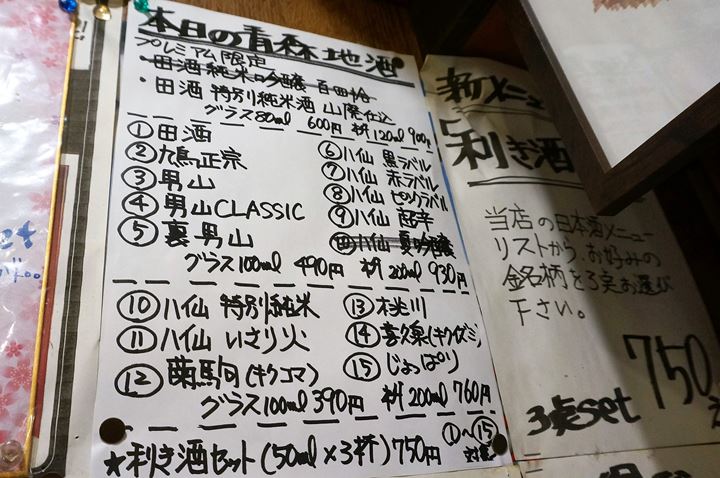 本日の青森地酒
プレミアム限定
・田酒 純米吟醸 百四拾
・田酒 特別純米酒 山廃仕込
グラス80ml 600円 枡120ml 900円
① 田酒
② 鳩正宗
③ 男山
④ 男山CLASSIC
⑤ 裏男山
⑥ 八仙 黒ラベル
⑦ 八仙 赤ラベル
⑧ 八仙 ピンクラベル
⑨ 八仙 超辛
⑩ 八仙 夏吟醸
グラス100ml 490円 枡200ml 930円
⑩ 八仙 特別純米
⑪ 八仙 いさり火
⑫ 菊駒(キクコマ)
⑬ 桃川
⑭ 喜久泉(キクイズミ)
⑮ じょっぱり
グラス100ml 390円 枡200ml 760円
★利き酒セット(50ml×3杯)750円
①～⑮
対象
新メニュ
利き酒
当店の日本酒メニュー
リストから、お好みの
銘柄を3実お選び
下さい。
750
set